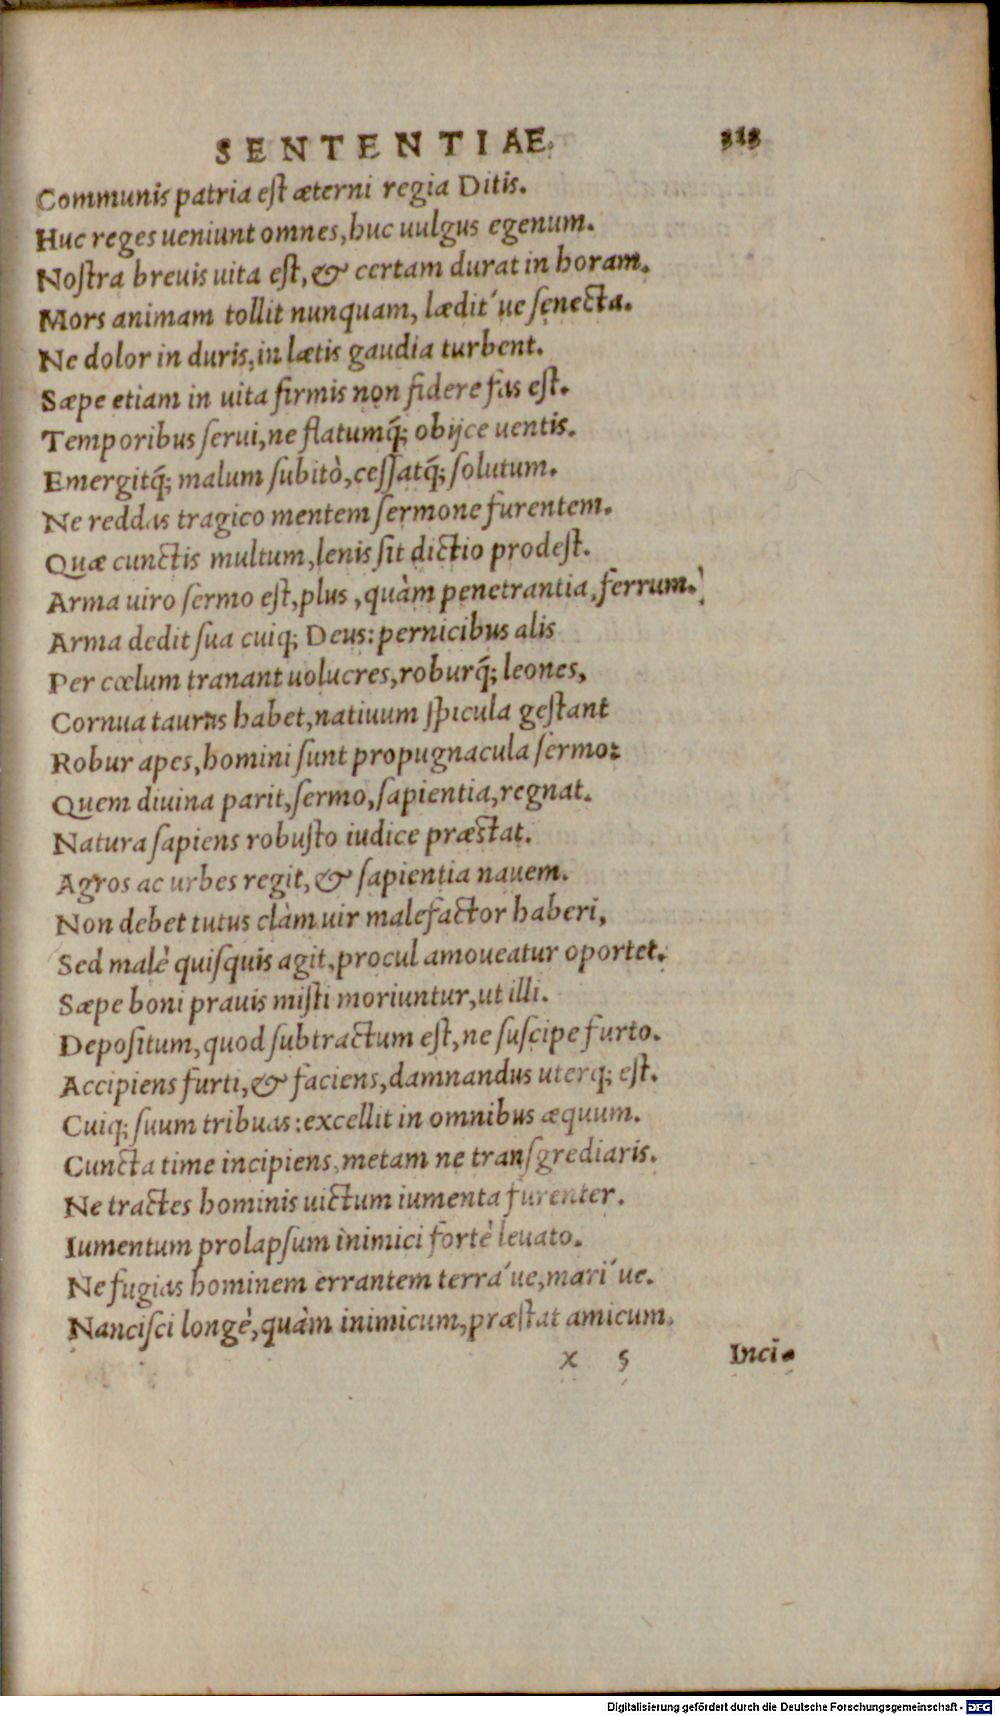 SENTENTIAE. 313
Communis patria est æterni regia Ditis.
Huc reges ueniunt omnes, huc uulgus egenum.
Nostra breuis uita est, & certam durat in horam.
Mors animam tollit nunquam, lædit´ue senecta.
Ne dolor in duris, in lætis gaudia turbent.
Sæpe etiam in uita firmis non fidere fas est.
Temporibus serui, ne flatumq́; obijce uentis.
Emergitq́; malum subitò, cessatq́; solutum.
Ne reddas tragico mentem sermone furentem.
Quæ cunctis multum, lenis sit dictio prodest.
Arma uiro sermo est, plus, quàm penetrantia, ferrum.
Arma dedit sua cuiq; Deus: pernicibus alis
Per cœlum tranant uolucres, roburq́; leones,
Cornua taurus habet, natiuum spicula gestant
Robur apes, homini sunt propugnacula sermo:
Quem diuina parit, sermo, sapientia, regnat.
Natura sapiens robusto iudice præstat.
Agros ac urbes regit, & sapientia nauem.
Non debet tutus clàm uir malefactor haberi,
Sed malè quisquis agit, procul amoueatur oportet.
Sæpe boni prauis misti moriuntur, ut illi.
Depositum, quod subtractum est, ne suscipe furto.
Accipiens furti, & faciens, damnandus uterq; est.
Cuiq; suum tribuas: excellit in omnibus æquum.
Cuncta time incipiens, metam ne transgrediaris.
Ne tractes hominis uictum iumenta furenter.
Iumentum prolapsum inimici fortè leuato.
Ne fugias hominem errantem terra´ue, mari´ue.
Nancisci longè, quàm inimicum, præstat amicum.
x 5 Inci-
Digitalisierung gefördert durch die Deutsche Forschungsgemeinschaft - DFG